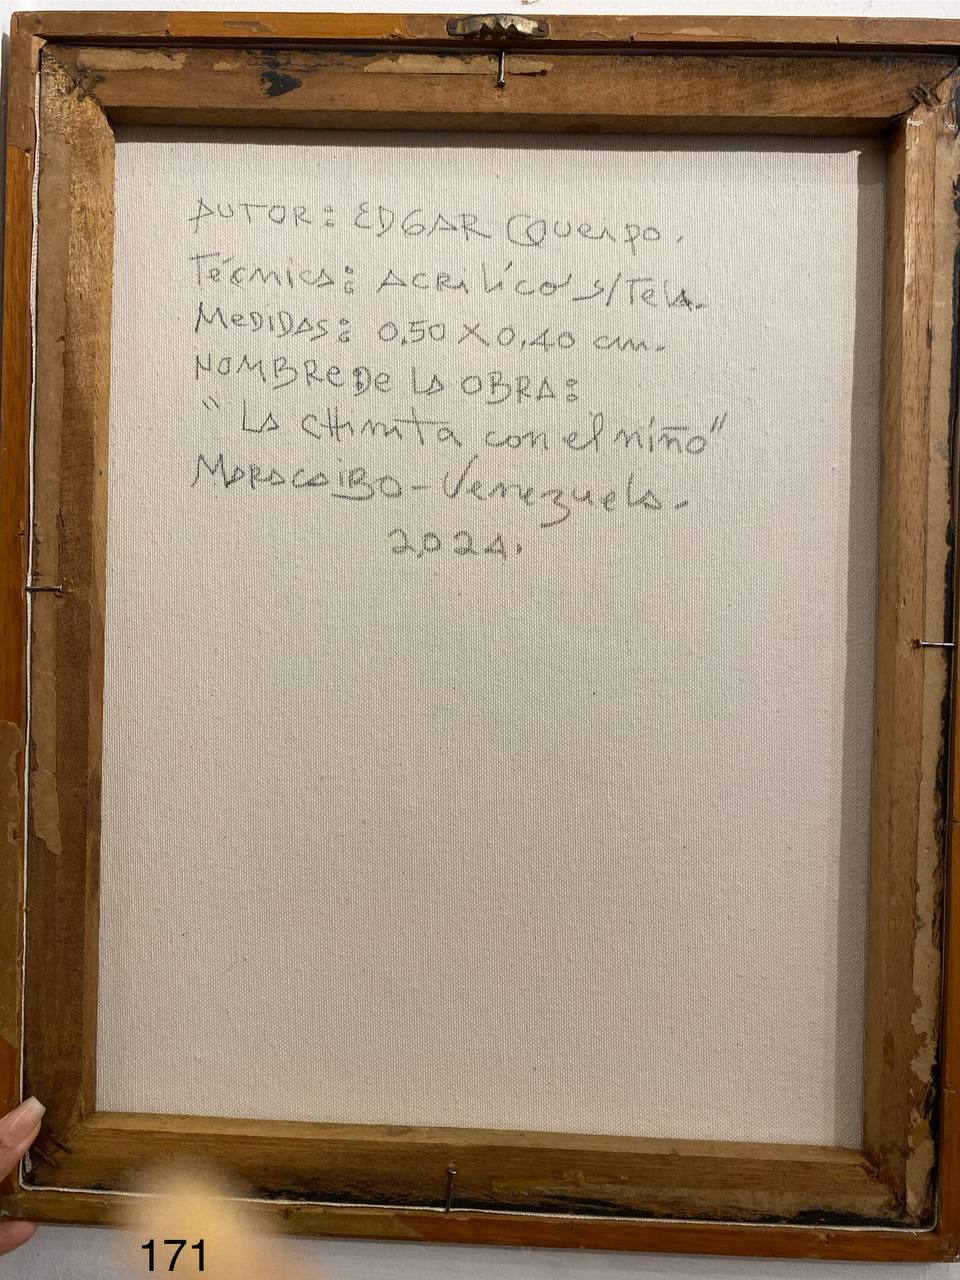 AUTOR: EDGAR Queipo.
Técnica: ACRILíco s/Tela.
MEDIDAS: 0,50 X 0,40 cm.
NOMBRE DE LA OBRA:
"La CHinita con el niño"
MARACAIBO-Venezuela.
2,024.
171